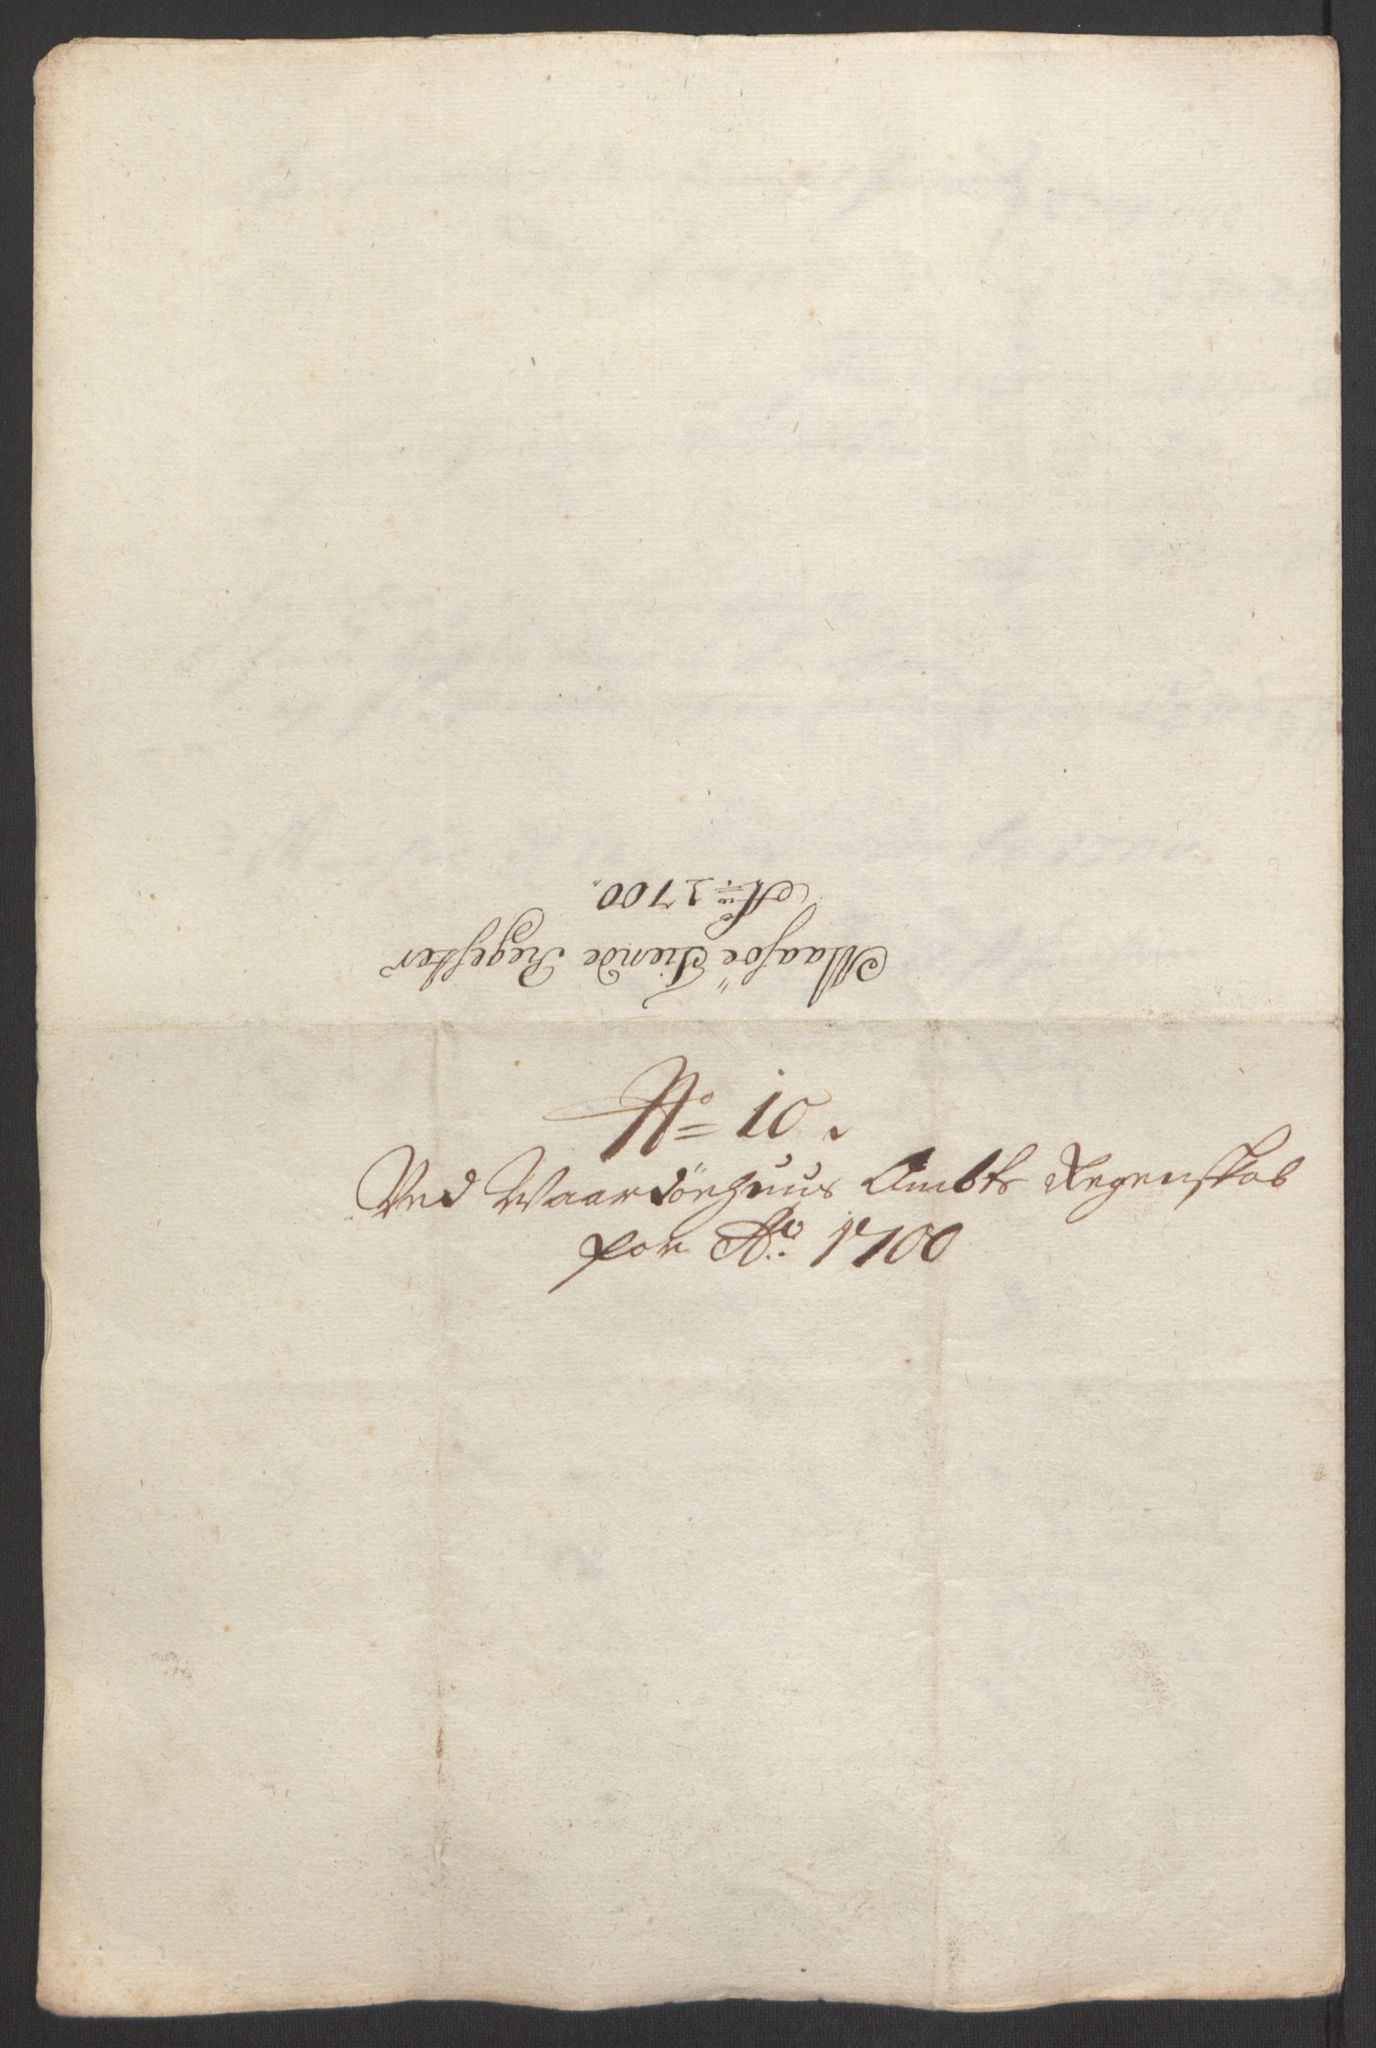 Maasöe Tiende Register
Aº 1700.
Nº = 10.
Ved Waardöehuus Ambts Regenskab
for Aº. 1700